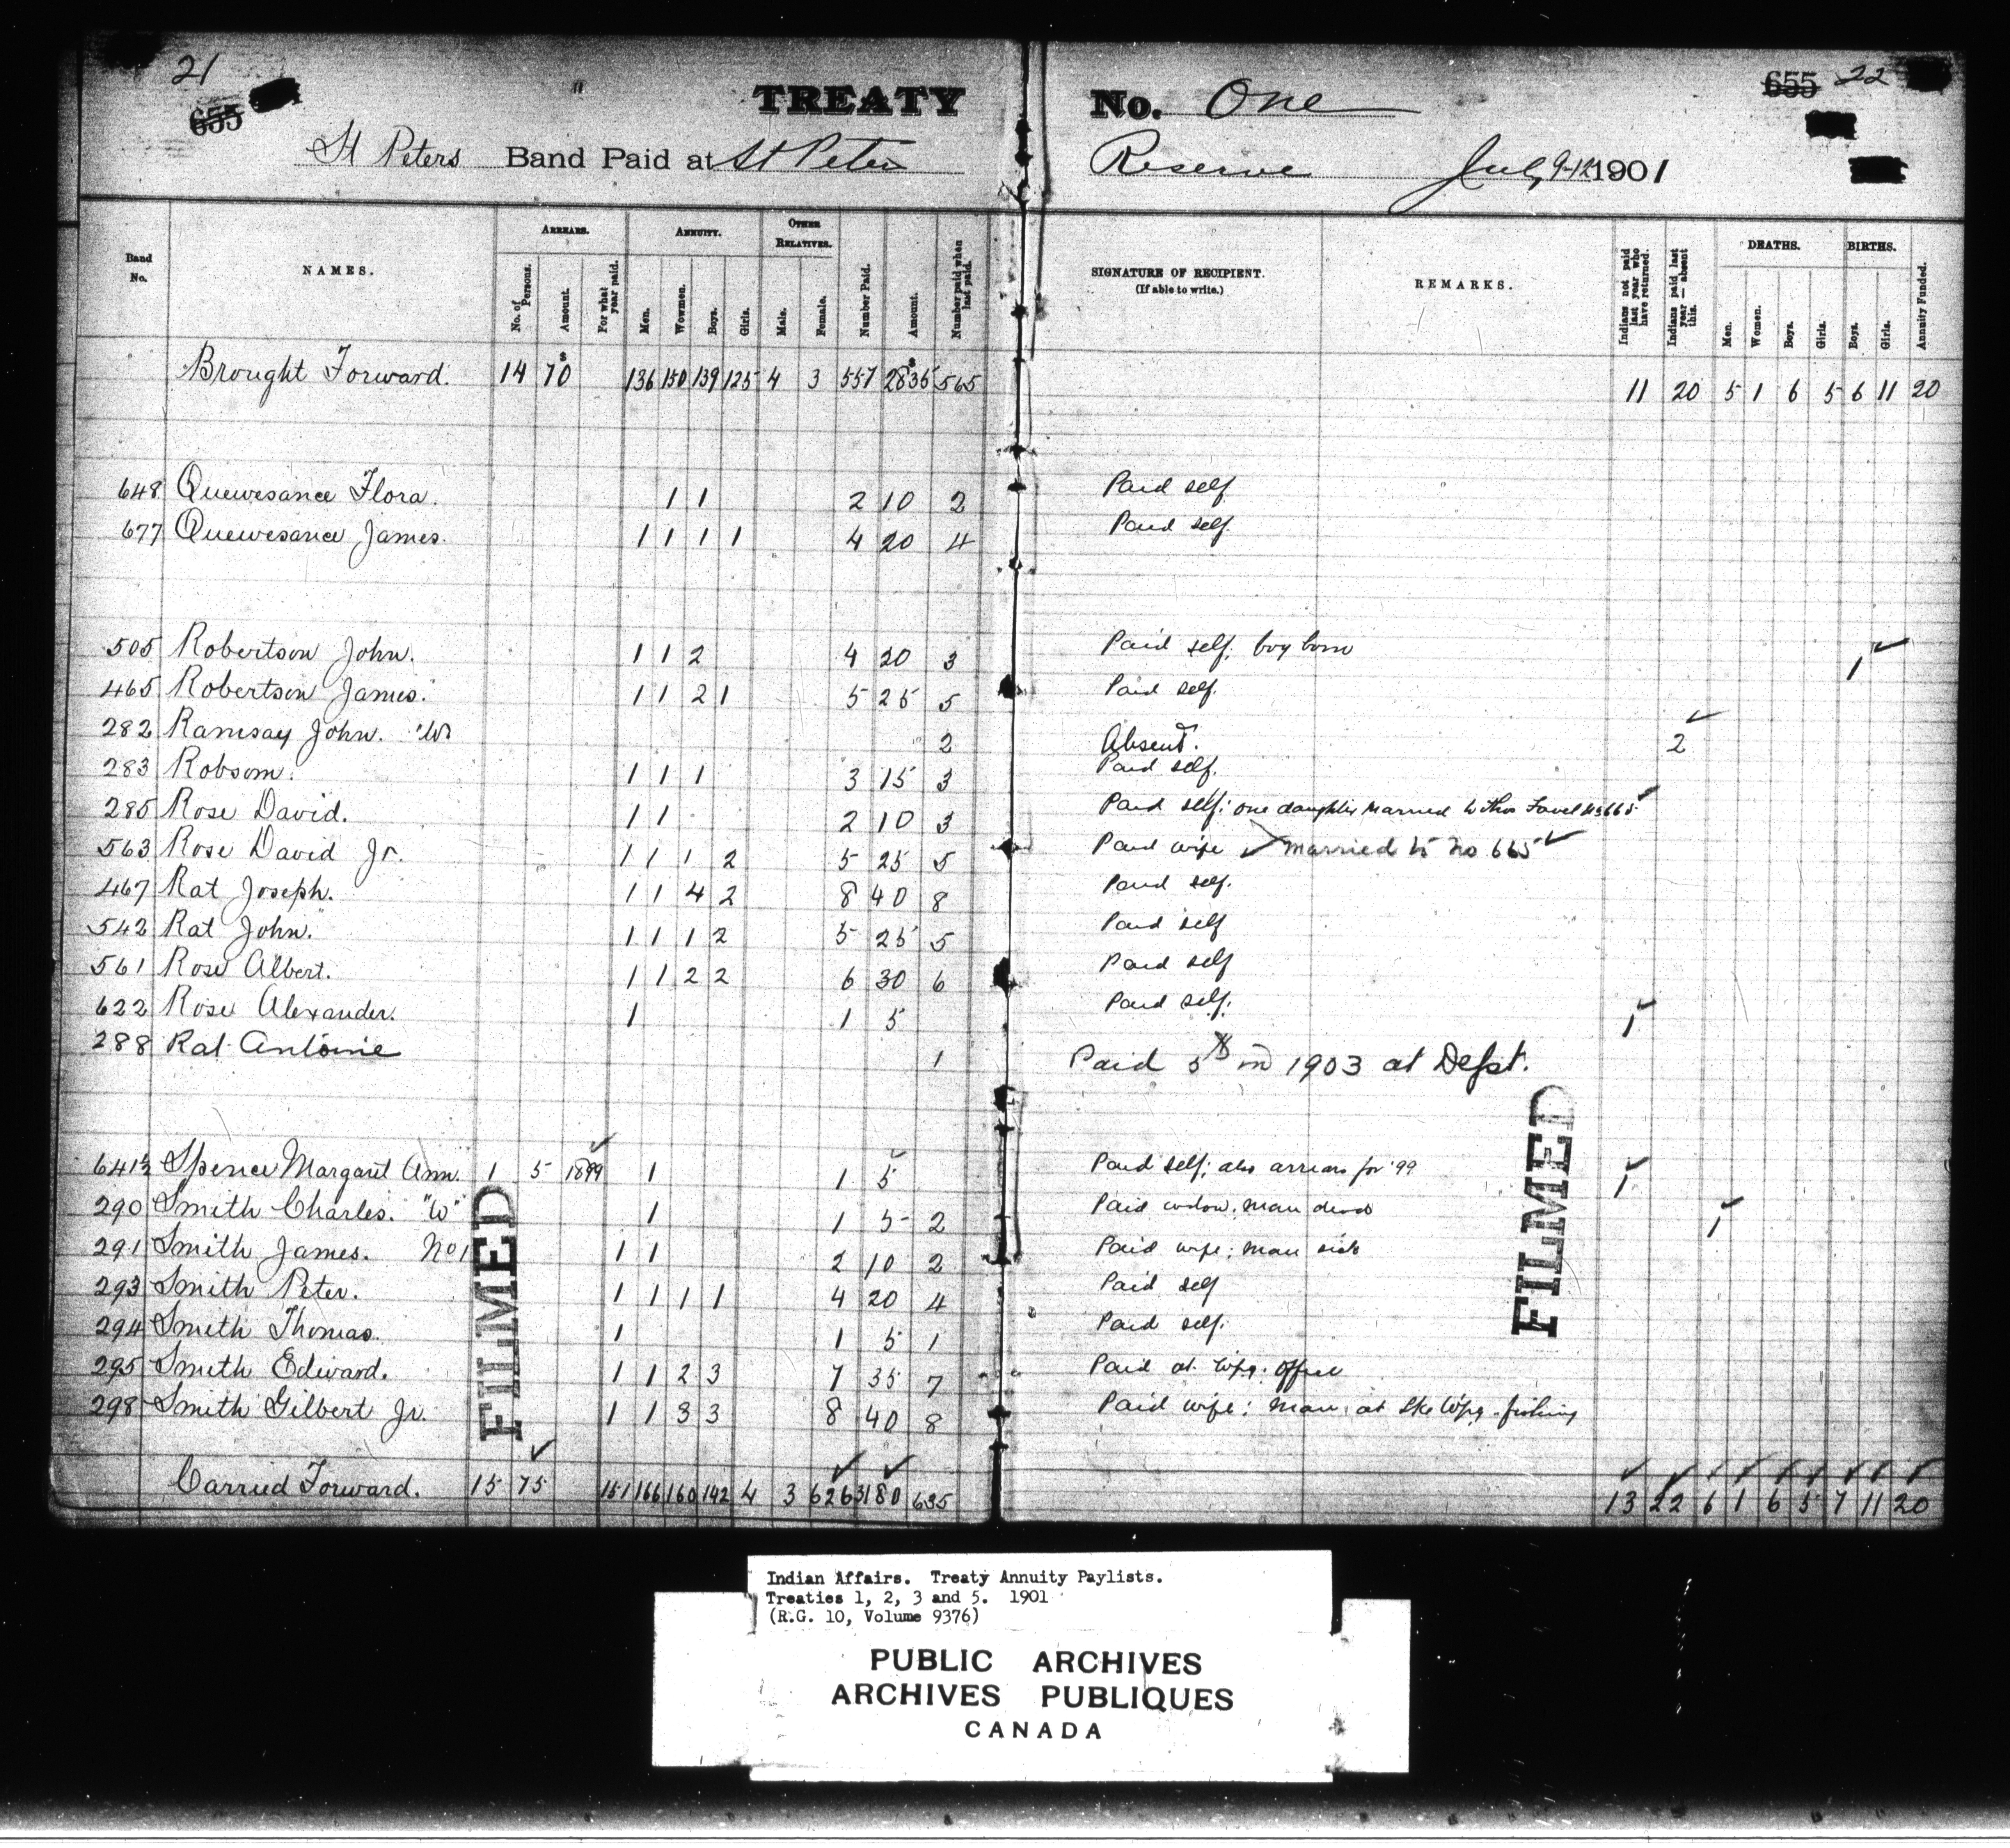 21
655
TREATY No. One
655 22
St Peters Band Paid at St Peter Reserve July 9-12 1901
Band No.
NAMES.
ARREARS.
No. of Persons.
Amount.
For what year paid.
ANNUITY.
Men.
Wowmen.
Boys.
Girls.
OTHER RELATIVES.
Male.
Female.
Number Paid.
Amount.
Number paid when last paid.
SIGNATURE OF RECIPIENT.
(If able to write.)
REMARKS.
Indians not paid last year who have returned.
Indians paid last year — absent this.
DEATHS.
Men.
Women.
Boys.
Girls.
BIRTHS.
Boys.
Girls.
Annuity Funded.
Brought Forward. 14 70 136 150 139 125 4 3 557 2835 565 11 20 5 1 6 5 6 11 20
648 Quewesance Flora. 1 1 2 10 2 Paid self
677 Quewesance James. 1 1 1 1 4 20 4 Paid self.
505 Robertson John. 1 1 2 4 20 3 Paid self; boy born 1
465 Robertson James. 1 1 2 1 5 25 5 Paid self.
282 Ramsay John. "W" 2 Absent. 2
283 Robsom. 1 1 1 3 15 3 Paid self.
285 Rose David. 1 1 2 10 3 Paid self: one daughter married to Thos Favel No 665
563 Rose David Jr. 1 1 1 2 5 25 5 Paid wife married to No 665
467 Rat Joseph. 1 1 4 2 8 40 8 Paid self.
542 Rat John. 1 1 1 2 5 25 5 Paid self
561 Rose Albert. 1 1 2 2 6 30 6 Paid self
622 Rose Alexander. 1 1 5 Paid self. 1
288 Rat Antoine 1 Paid 5 in 1903 at Dept.
641½ Spence Margaret Ann. 1 5 1899 1 1 5 Paid self; also arrears for '99 1
290 Smith Charles. "W" 1 1 5 2 Paid widow. Man dead 1
291 Smith James. No 1 1 1 2 10 2 Paid wife; man sick
293 Smith Peter. 1 1 1 1 4 20 4 Paid self
294 Smith Thomas. 1 1 5 1 Paid self.
295 Smith Edward. 1 1 2 3 7 35 7 Paid at Wpg. office
298 Smith Gilbert Jr. 1 1 3 3 8 40 8 Paid wife; Man at Lke Wpg. fishing
Carried Forward. 15 75 151 166 160 142 4 3 626 3180 635 13 22 6 1 6 5 7 11 20
FILMED
FILMED
Indian Affairs. Treaty Annuity Paylists.
Treaties 1, 2, 3 and 5. 1901
(R.G. 10, Volume 9376)
PUBLIC ARCHIVES
ARCHIVES PUBLIQUES
CANADA